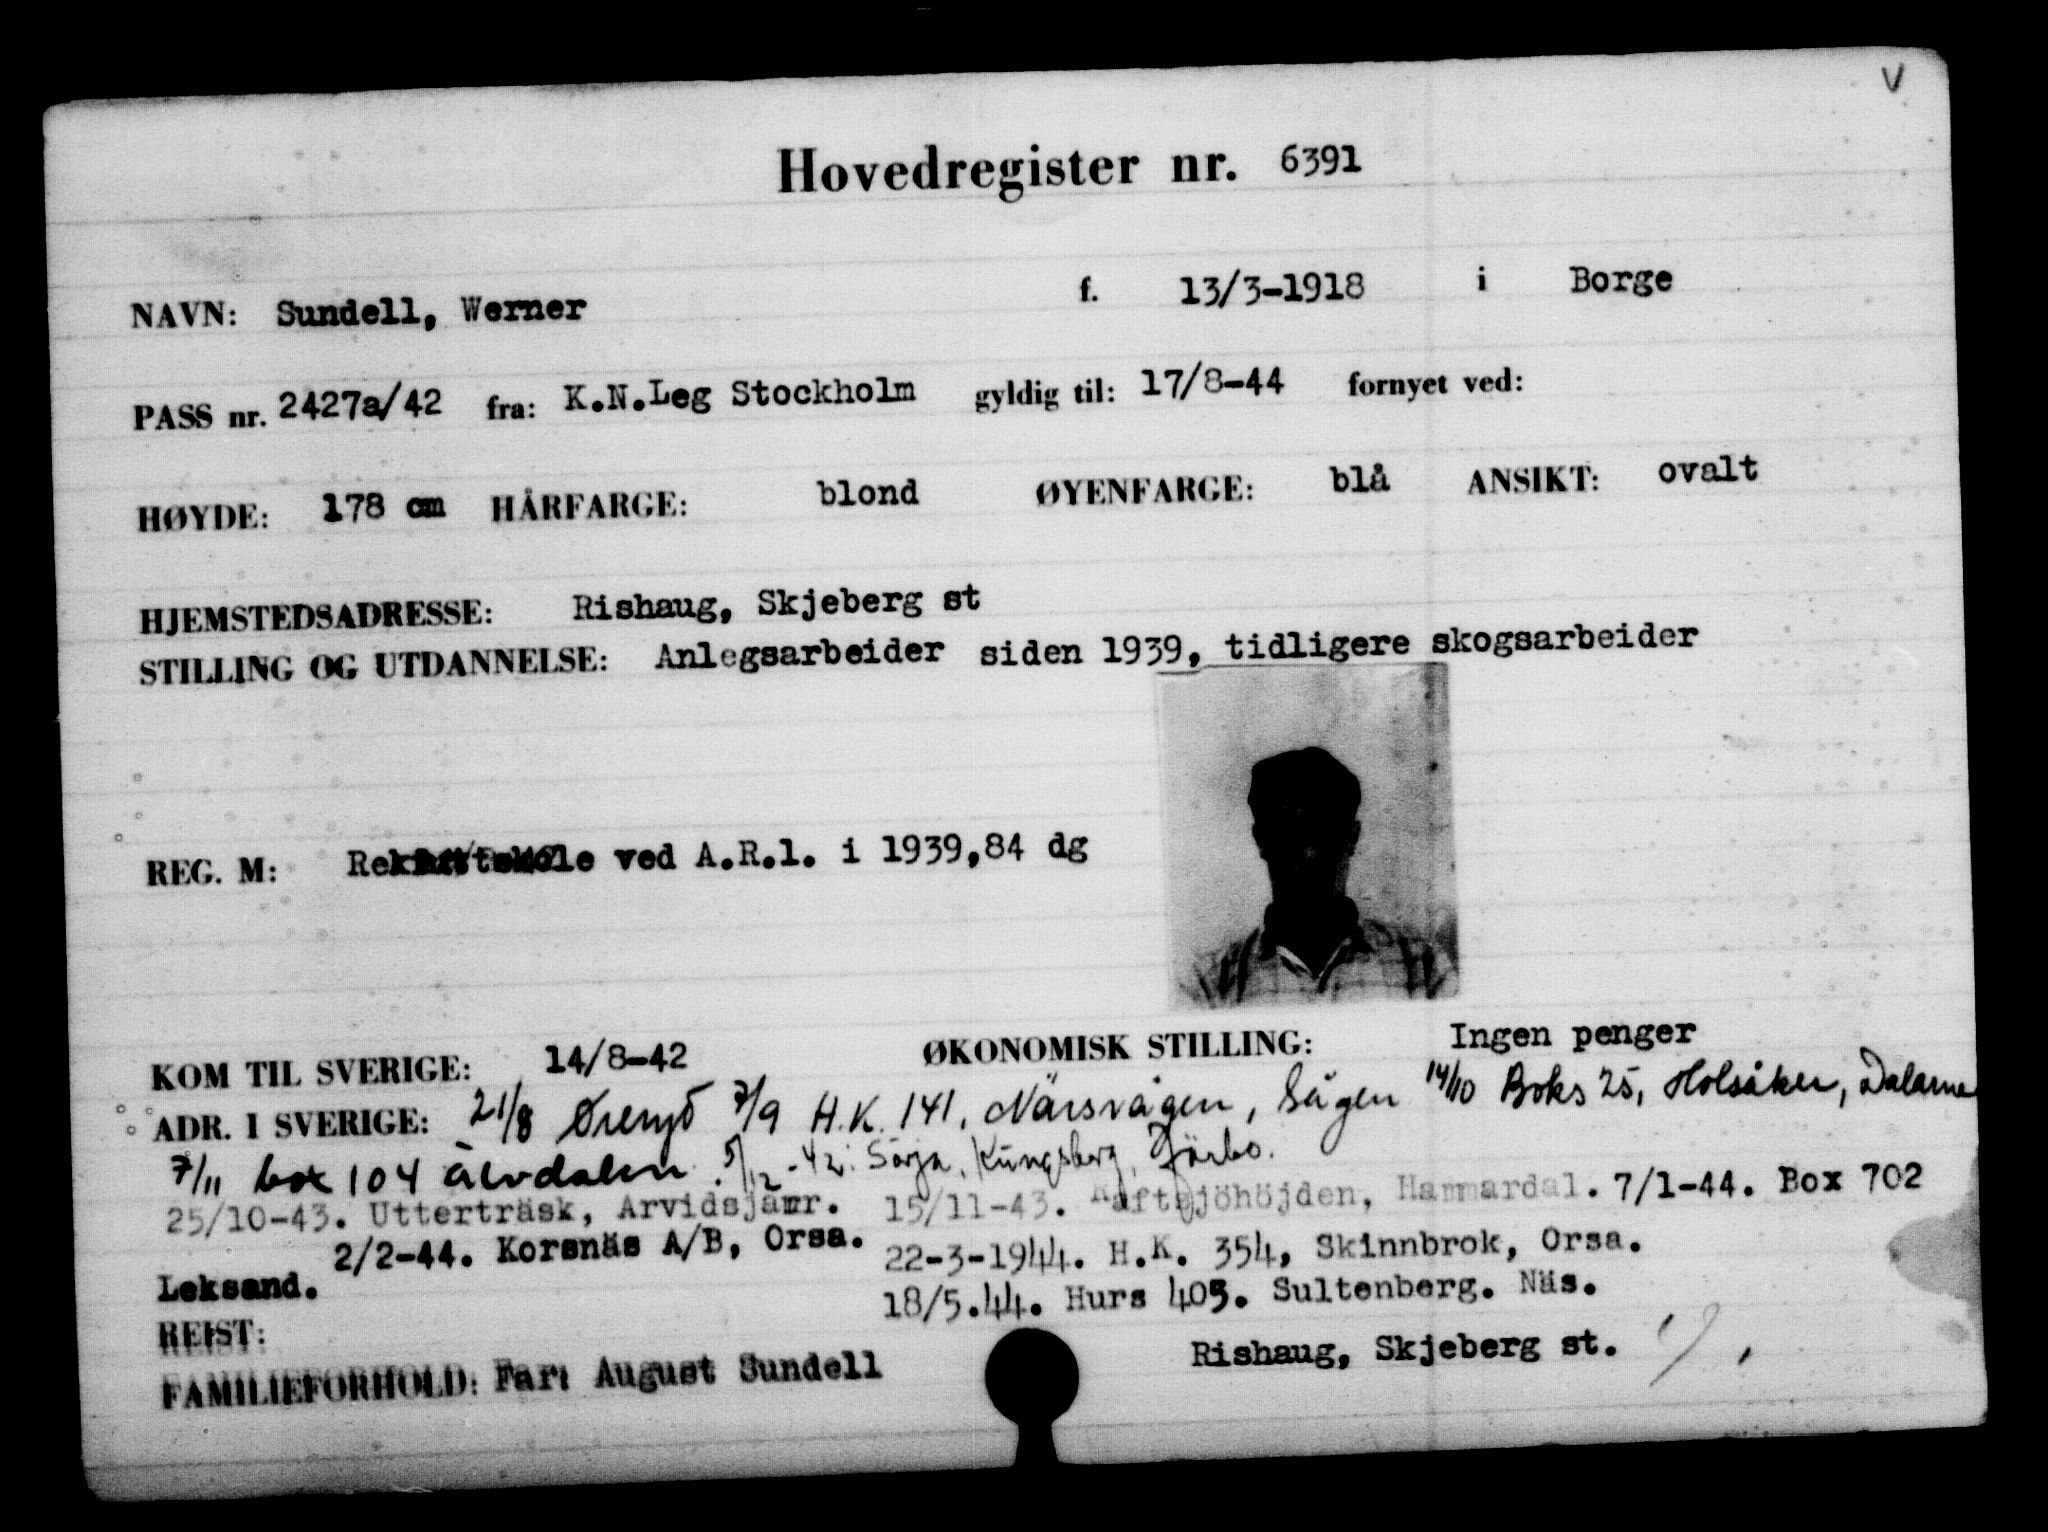 V
Hovedregister nr. 6391
NAVN: Sundell, Werner f. 13/3-1918 i Borge
PASS nr. 2427a/42 fra: K.N.Leg Stockholm gyldig til: 17/8-44 fornyet ved:
HØYDE: 178 cm HÅRFARGE: blond ØYENFARGE: blå ANSIKT: ovalt
HJEMSTEDSADRESSE: Rishaug, Skjeberg st
STILLING OG UTDANNELSE: Anlegsarbeider siden 1939, tidligere skogsarbeider
REG. M: Rekruttskole ved A.R.l. i 1939,84 dg
KOM TIL SVERIGE: 14/8-42 ØKONOMISK STILLING: Ingen penger
ADR. I SVERIGE: 21/8 Øreryd 7/9 H.K. 141, Närsvågen, Sågen 14/10 Boks 25, Holsåker, Dalarne
7/11 box 104 Älvdalen. 5/12-42: Sörja, Kungsberg, Järbo.
25/10-43. Utterträsk, Arvidsjaur. 15/11-43. Raftsjöhöjden, Hammardal. 7/1-44. Box 702
Leksand. 2/2-44. Korsnäs A/B, Orsa. 22-3-1944. H.K. 354, Skinnbrok, Orsa.
18/5.44. Hurs 405. Sultenberg. Näs.
REIST:
FAMILIEFORHOLD: Far: August Sundell Rishaug, Skjeberg st.